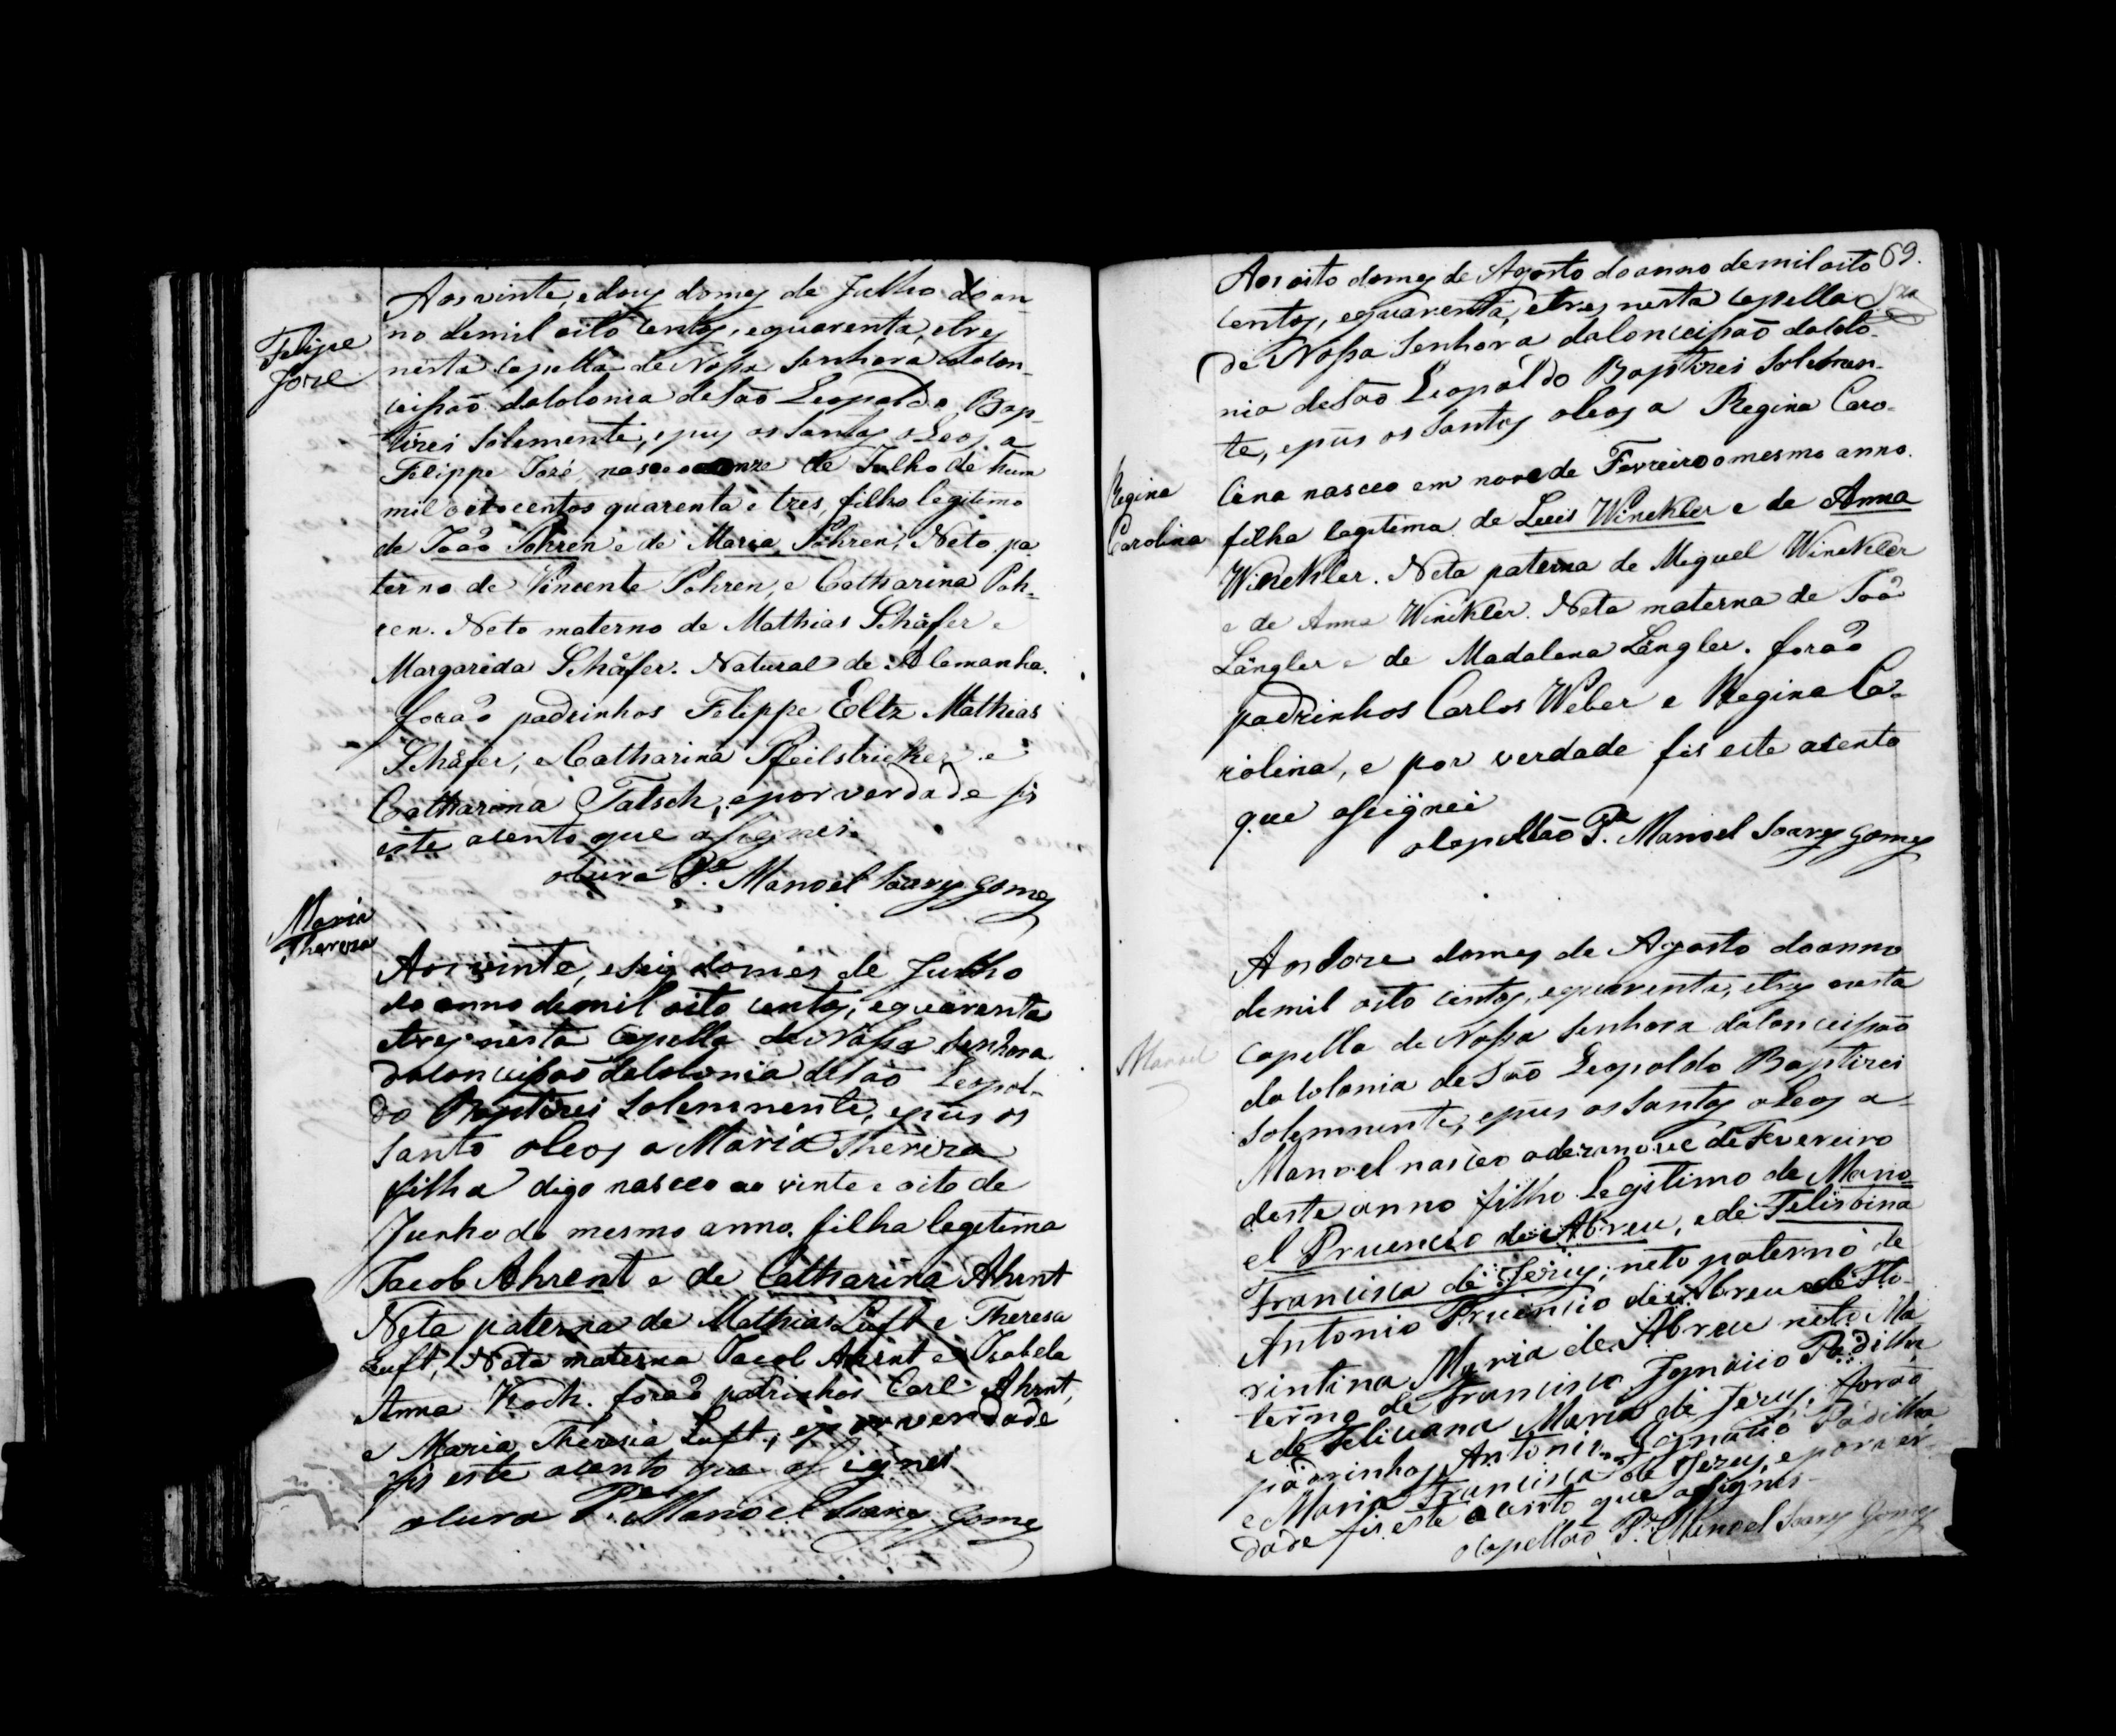 Felipe
Jozé
Aos vinte, e douz do mez de Julho do an-
no de mil oito centos, e quarenta, e tres
nesta Capella de Nossa Senhora da Con-
ceissaõ da Colonia de Saõ Leopoldo Bap-
tizei Solemente, e puz os Santos oleos a
Felippe Jozé, nasceo a onze de Julho de hum
mil oitocentos quarenta e tres, filho legitimo
de Joaõ Pohren e de Maria Pohren, Neto pa
terno de Vincente Pohren, e Catharina Poh-
ren. Neto materno de Mathias Schäfer e
Margareda Schäfer. Natural de Alemanha.
foraõ padrinhos Felippe Eltz Mathias
Schäfer, e Catharina Pfeilstricker e
Catharina Tatsch, e por verdade fis
este acento que assignei.
o Cura Pe. Manoel Soares Gomes
Maria
Thereza
Aos vinte, e seis do mes de Julho
do anno de mil oito centos, e quarenta
e tres nesta Capella de Nossa Senhora
da Conceissaõ da Colonia de Saõ Leopol-
do Baptizei Solemnente, e pus os
Santo oleos a Maria Thereza
filha digo nasceo ao vinte e oito de
Junho do mesmo anno. filha legitima
Jacob Ahrent e de Catharina Ahrnt
Neta paterna de Mathias Luft e Theresa
Luft, Neta materna Jacob Ahrnt e Isabela
Anna Koch. foraõ padrinhos Carl Ahrnt,
e Maria Theresia Luft, e por verdade
fis este acento que assignei
o Cura Pe. Manoel Soares Gomes
69.
Aos oito do mez de Agosto do anno de mil oito
centos, e quarenta, e tres nesta Capella
de Nossa Senhora da Conceissaõ da Colo-
nia de Saõ Leopoldo Baptizei Solemnen-
te, e pus os Santos oleos a Regina Caro-
Regina
Carolina
lina nasceo em nove de Fevreiro o mesmo anno.
filha legitima de Luis Winckler e de Anna
Winckler. Neta paterna de Miguel Winckler
e de Anna Winckler. Neta materna de Joaõ
Längler e de Madalena Längler. foraõ
padrinhos Carlos Weber e Regina Ca-
rolina, e por verdade fis este acento
que asseignei
o Capellaõ Pe. Manoel Soares Gomes
Manoel
Aos doze do mez de Agosto do anno
de mil oito centos, e quarenta, e tres nesta
Capella de Nossa Senhora da Conceissaõ
da Colonia de Saõ Leopoldo Baptizei
Solemnente, e pus os Santos oleos a
Manoel nasceo a dezanove de Fevereiro
deste anno filho Legitimo de Mano-
el Pruencio de Abreu, e de Felisbina
Francisca de Jezus, neto paterno de
Antonio Pruencio de Abreu e de Flo-
rintina Maria de Abreu neto Ma
terno de Francisco Ignacio Padilha
e de Feliciana Maria de Jezus. foraõ
padrinhos Antonio Ignacio Padilha
e Maria Francisca de Jezus, e por ver-
dade fis este acento que assignei-
o Capellaõ Pe. Manoel Soares Gomes